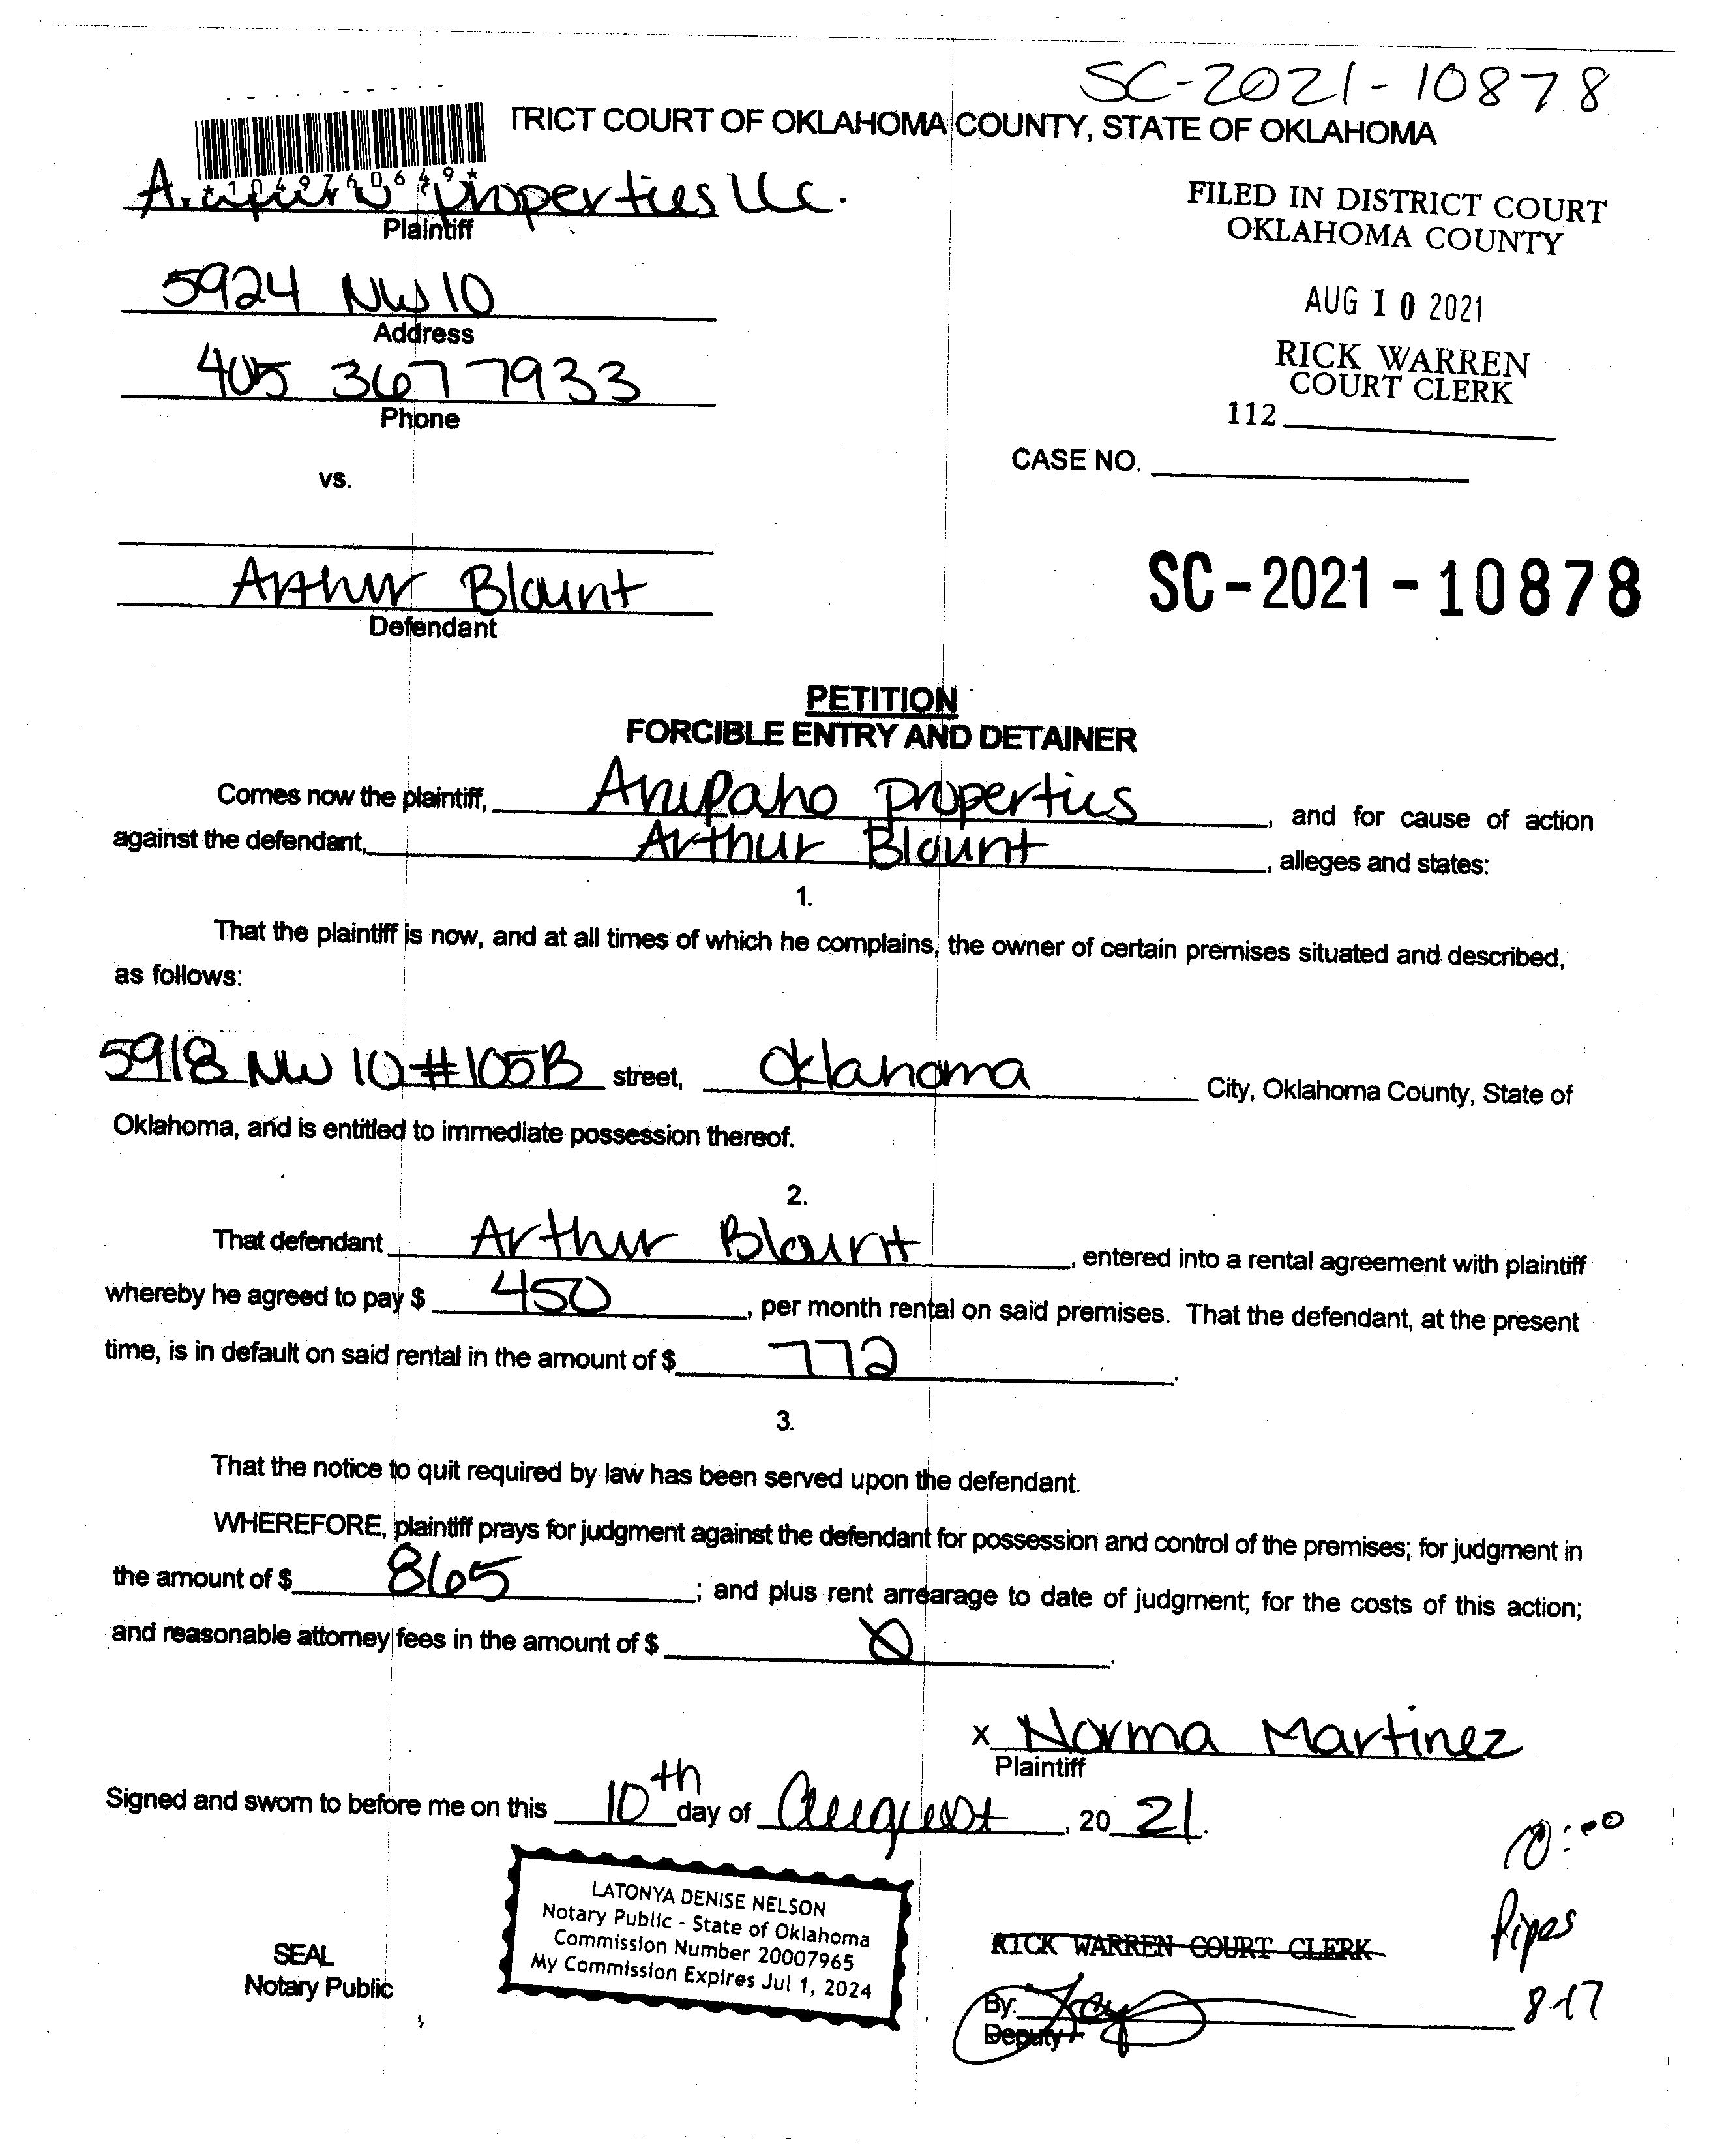 SC-2021-10878
TRICT COURT OF OKLAHOMA COUNTY, STATE OF OKLAHOMA
*1049760649*
properties llc.
Plaintiff
FILED IN DISTRICT COURT
OKLAHOMA COUNTY
5924 NW 10
Address
AUG 10 2021
405 367 7933
Phone
RICK WARREN
COURT CLERK
112
CASE NO.
vs.
Arthur Blount
Defendant
SC-2021-10878
PETITION
FORCIBLE ENTRY AND DETAINER
Comes now the plaintiff, Arupaho properties, and for cause of action
against the defendant, Arthur Blount, alleges and states:
1.
That the plaintiff is now, and at all times of which he complains, the owner of certain premises situated and described,
as follows:
5918 NW 10 #105B street, Oklahoma City, Oklahoma County, State of
Oklahoma, and is entitled to immediate possession thereof.
2.
That defendant Arthur Blount, entered into a rental agreement with plaintiff
whereby he agreed to pay $ 450, per month rental on said premises. That the defendant, at the present
time, is in default on said rental in the amount of $ 772.
3.
That the notice to quit required by law has been served upon the defendant.
WHEREFORE, plaintiff prays for judgment against the defendant for possession and control of the premises; for judgment in
the amount of $ 865; and plus rent arrearage to date of judgment; for the costs of this action;
and reasonable attorney fees in the amount of $ 0.
x Norma Martinez
Plaintiff
Signed and sworn to before me on this 10th day of August, 20 21.
10:00
LATONYA DENISE NELSON
Notary Public - State of Oklahoma
Commission Number 20007965
My Commission Expires Jul 1, 2024
SEAL
Notary Public
RICK WARREN COURT CLERK
Pipes
By:
Deputy
8-17